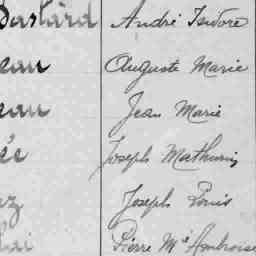 Bastard André Isidore
eau Auguste Marie
eau Jean Marie
ée Joseph Mathurin
ez Joseph Louis
lai Pierre Mie Ambroise